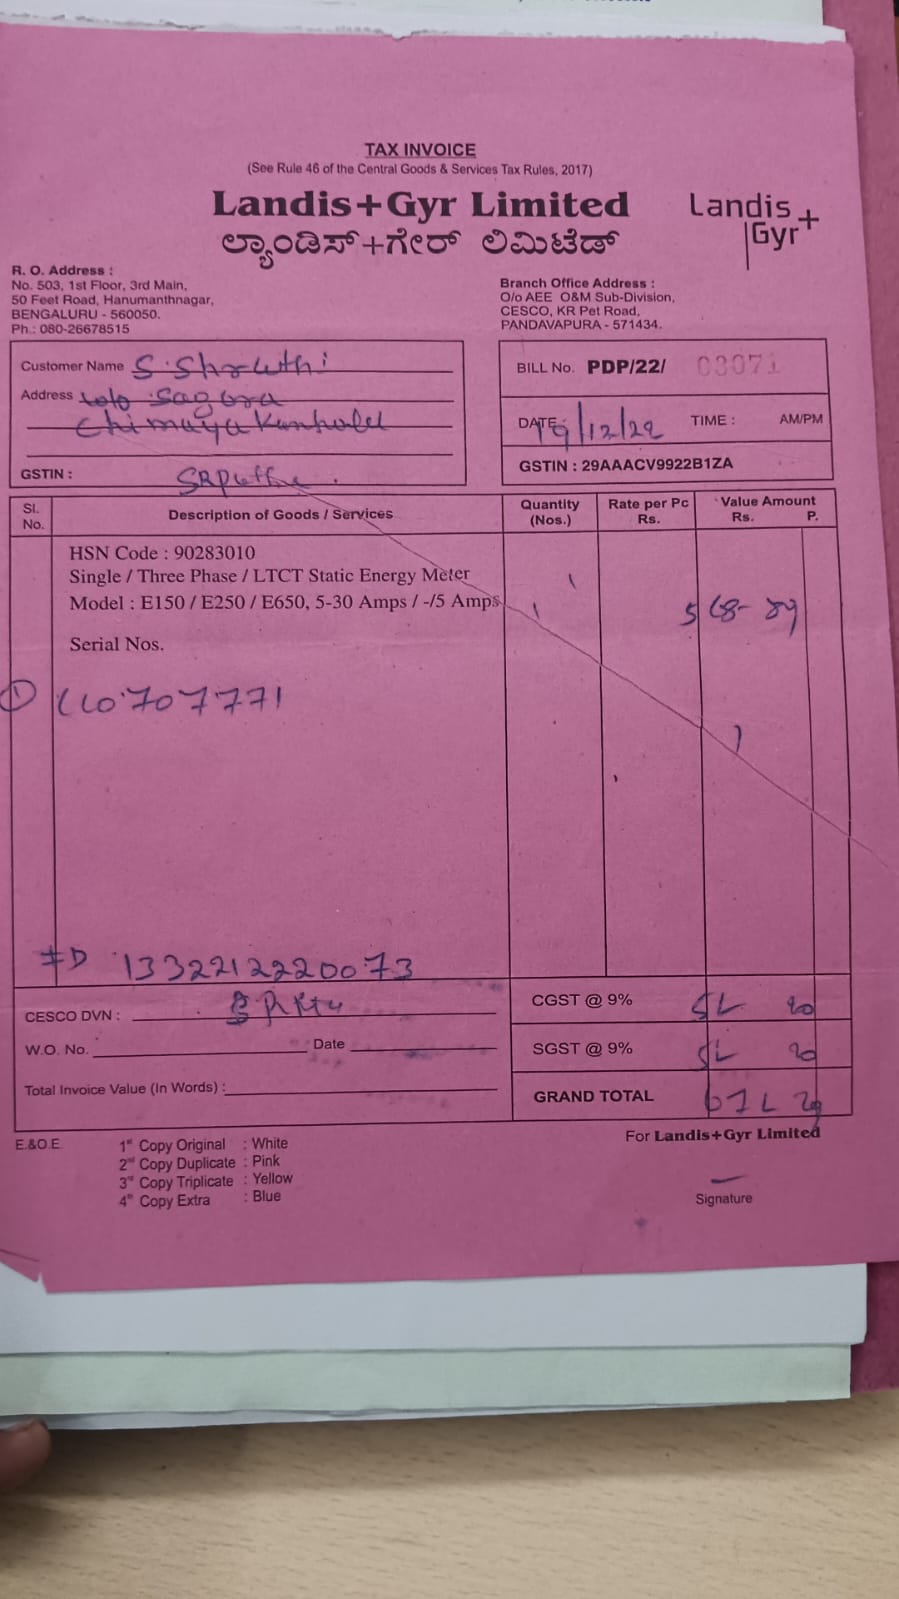 TAX INVOICE
(See Rule 46 of the Central Goods & Services Tax Rules, 2017)
Landis+Gyr Limited
ಲ್ಯಾಂಡಿಸ್+ಗೇರ್ ಲಿಮಿಟೆಡ್
Landis
Gyr+
R. O. Address :
No. 503, 1st Floor, 3rd Main,
50 Feet Road, Hanumanthnagar,
BENGALURU - 560050.
Ph.: 080-26678515
Branch Office Address :
O/o AEE O&M Sub-Division,
CESCO, KR Pet Road,
PANDAVAPURA - 571434.
Customer Name S. Shruthi
Address w/o Sagara
GSTIN :
BILL No. PDP/22/ 03071
DATE: 19/12/22 TIME : AM/PM
GSTIN : 29AAACV9922B1ZA
Sl. No. Description of Goods / Services Quantity (Nos.) Rate per Pc Rs. Value Amount Rs. P.
HSN Code : 90283010
Single / Three Phase / LTCT Static Energy Meter
Model : E150 / E250 / E650, 5-30 Amps / -/5 Amps 1 568-89
Serial Nos.
1332212220073
CESCO DVN :
W.O. No. Date
Total Invoice Value (In Words) :
CGST @ 9% 51 20
SGST @ 9% 51 20
GRAND TOTAL 671 29
E.&O.E.
1st Copy Original : White
2nd Copy Duplicate : Pink
3rd Copy Triplicate : Yellow
4th Copy Extra : Blue
For Landis+Gyr Limited
Signature